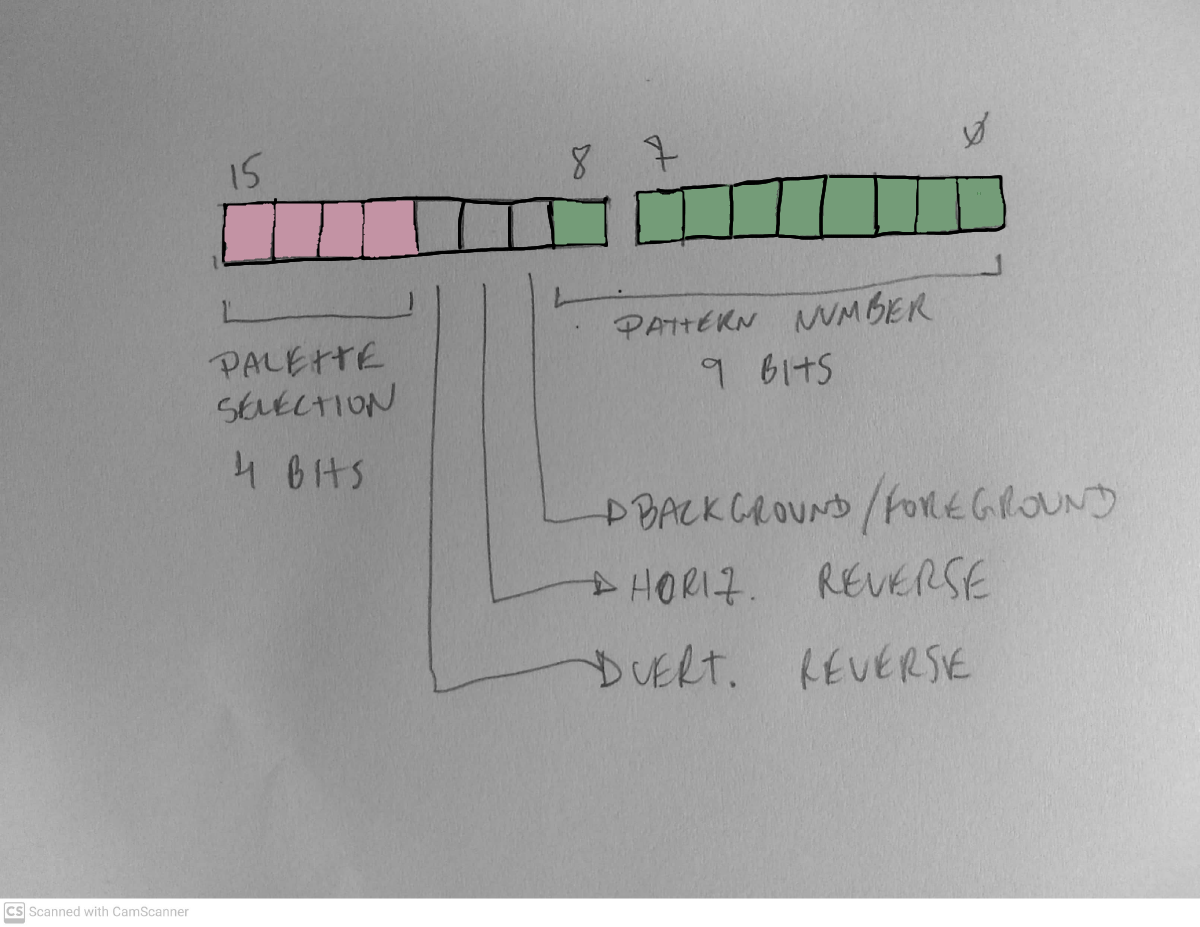 15 8 7 0
PALETTE
SELECTION
4 BITS
PATTERN NUMBER
9 BITS
BACKGROUND/FOREGROUND
HORIZ. REVERSE
VERT. REVERSE
CS Scanned with CamScanner